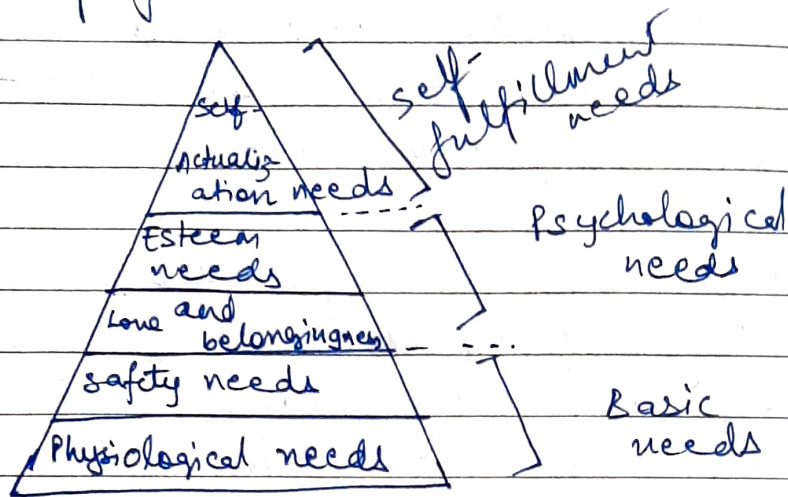 Self-
Actualiz-
ation needs
Esteem
needs
Love and
belongingness
safety needs
Physiological needs
self-
fulfillment
needs
Psychological
needs
Basic
needs